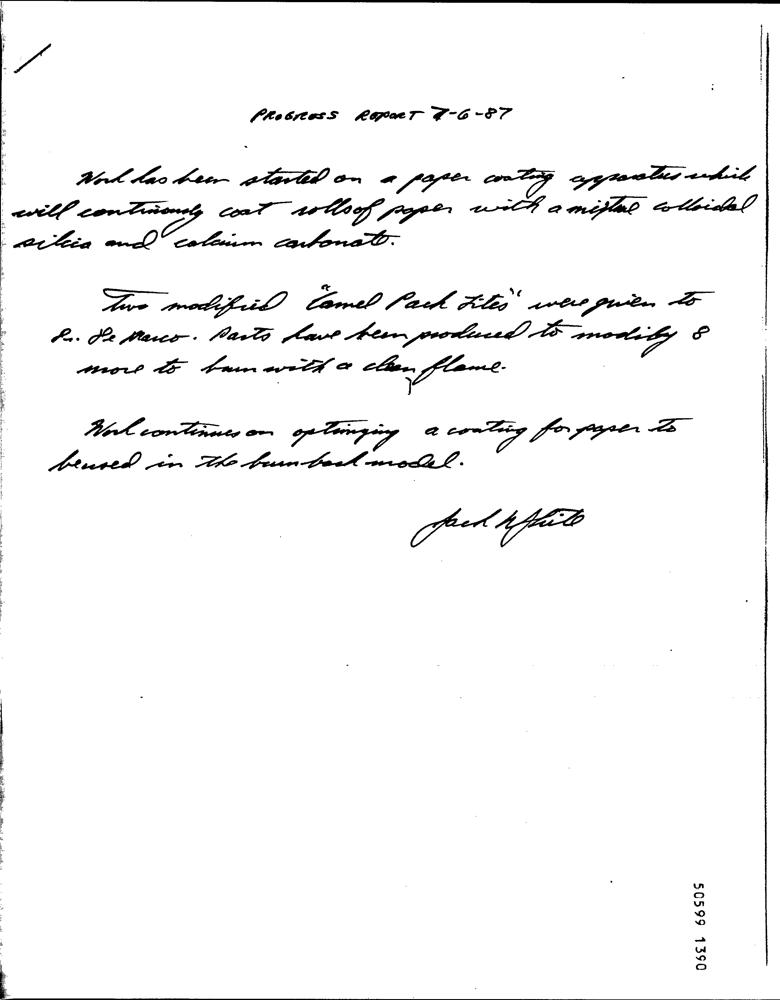 PROGRESS REPORT 7-6-87
Work has been started on a paper coating apparatus which
will continously coat rolls of paper with a mixture colloidal
silica and calcium carbonate.
Two modified "Camel Pack Lites" were given to
De Marco. Parts have been produced to modify 8
more to burn with a clean flame.
Work continues on optimizing a coating for paper to
be used in the burn back model.
Jack White
50599 1390